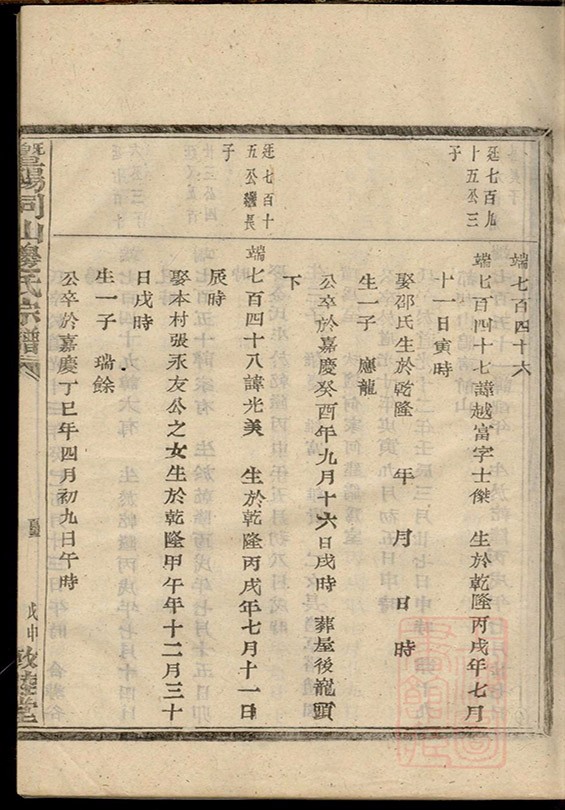 端七百四十六
廷七百九
十五公三
子
端七百四十七諱越富字士傑 生於乾隆丙戌年七月
十一日寅時
娶邵氏生於乾隆 年 月 日 時
生一子 應龍
公卒於嘉慶癸酉年九月十六日戌時 葬屋後龍頭
下
廷七百十
五公繼長
子
端七百四十八諱光美 生於乾隆丙戌年七月十一日
辰時
娶本村張永友公之女生於乾隆甲午年十二月三十
日戌時
生一子 瑞餘
公卒於嘉慶丁巳年四月初九日午時
暨陽同山邊氏宗譜
戊申 敦睦堂